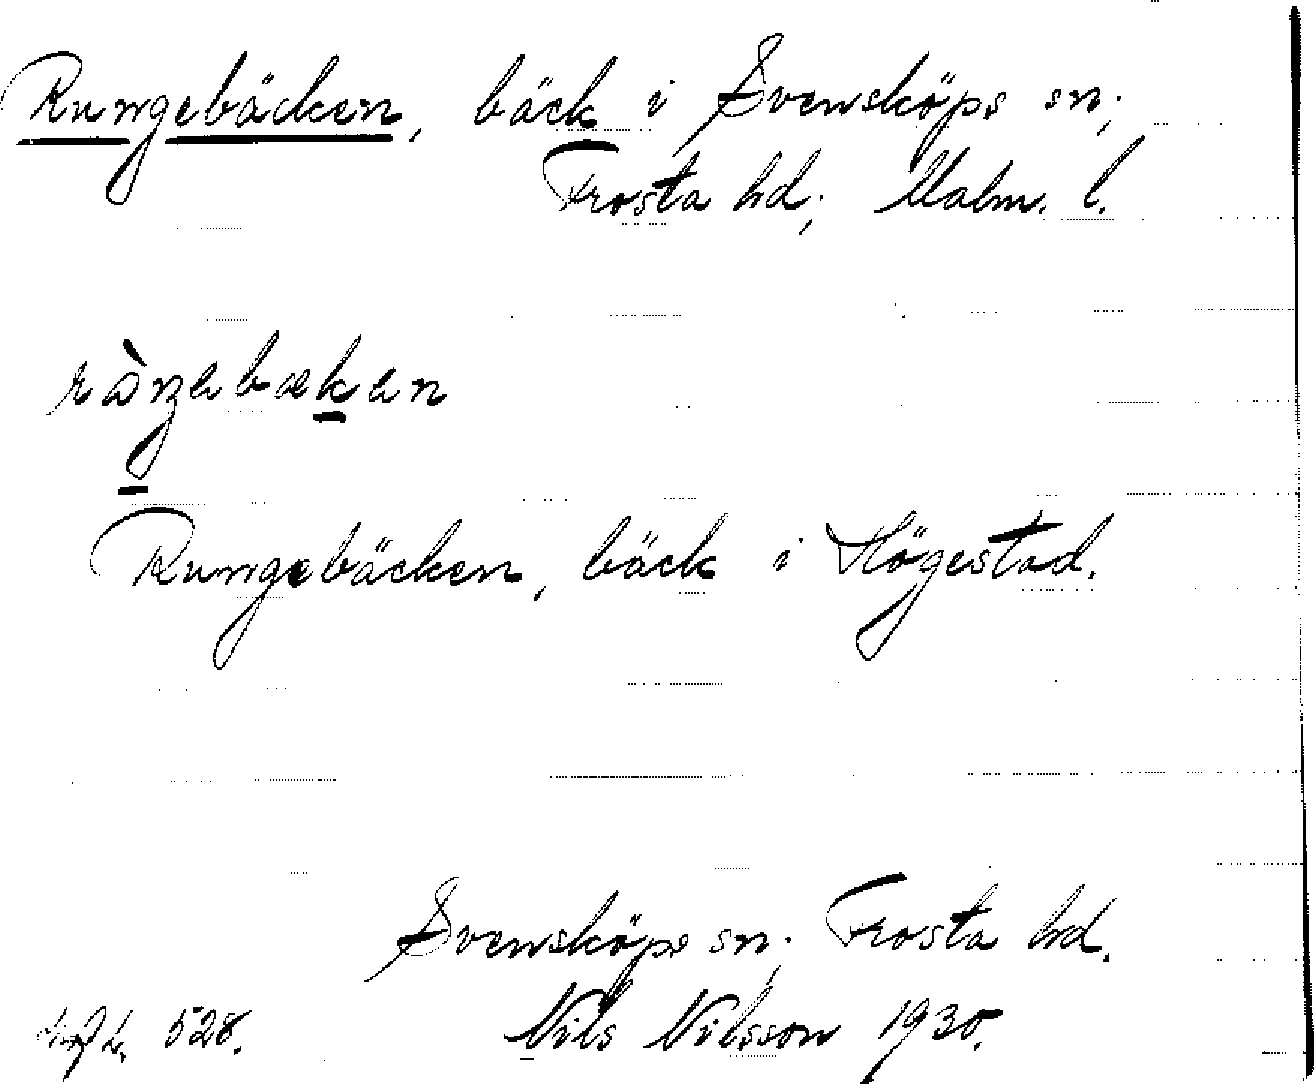 Rungebäcken, bäck i Svensköps sn;
Frosta hd; Malm. l.
Rungebäcken, bäck i Högestad.
Svensköps sn; Frosta hd.
528. Nils Nilsson 1930.